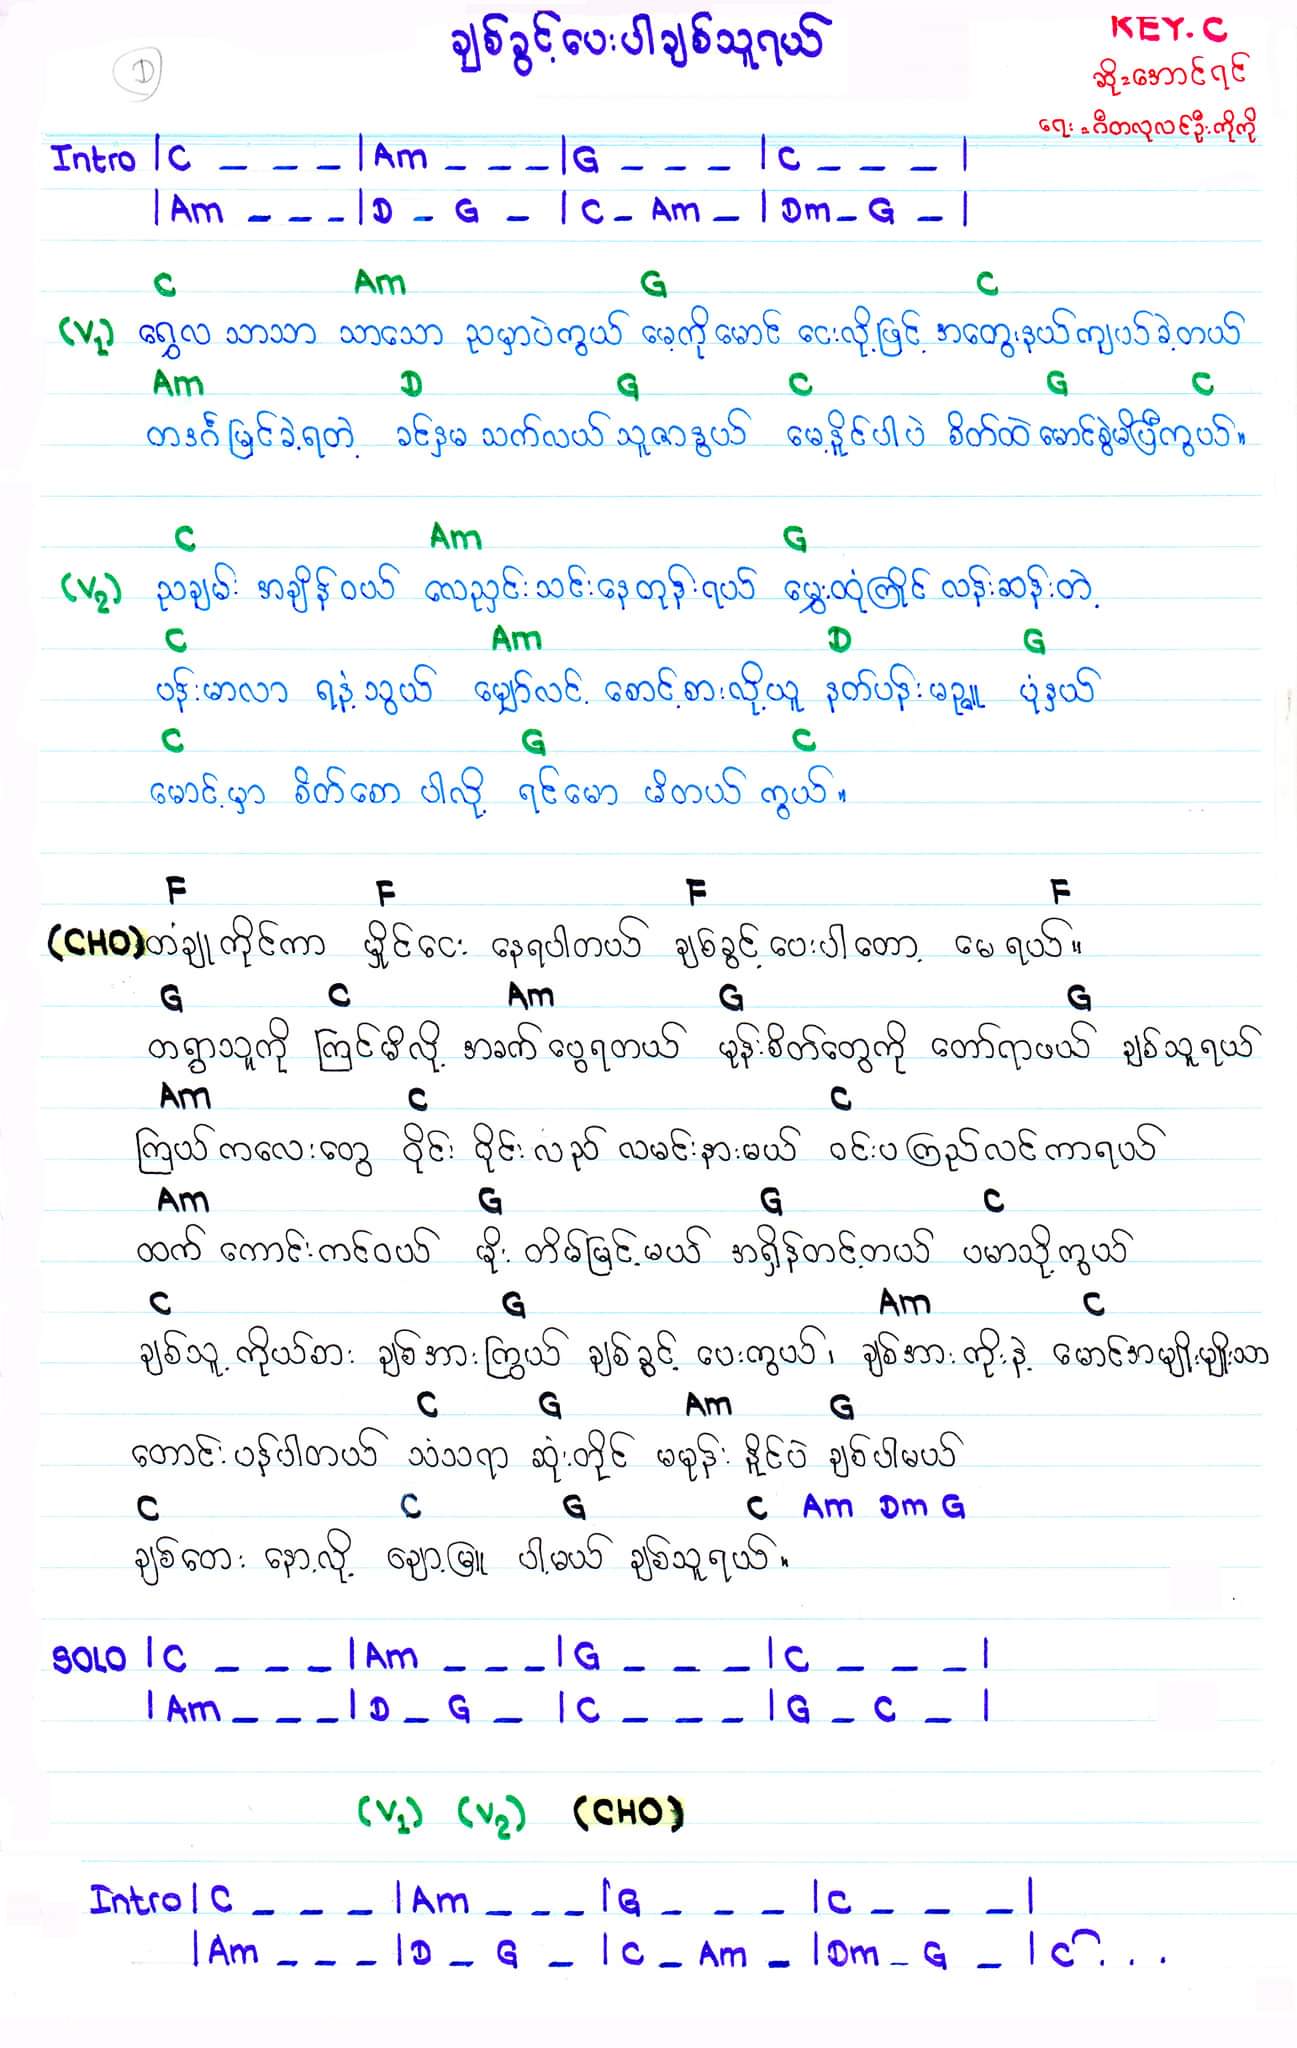 ချစ်ခွင့်ပေးပါချစ်သူရယ်
KEY. C
D
ဆို=အောင်ရင်
ရေး=ဂီတလုလင်ဦးကိုကို
Intro |C _ _ _ |Am _ _ _ |G _ _ _ |C _ _ _ |
|Am _ _ _ |D _ G _ |C _ Am _ |Dm _ G _ |
C Am G C
(V1) ရွှေလ သာသာ သာသော ညမှာပဲကွယ် မေ့ကိုမောင် ငေးလို့ဖြင့် အတွေးနယ်ကျယ်ခဲ့တယ်
Am D G C G C
တဒင်္ဂမြင်ခဲ့ရတဲ့ ခင်နှမ သက်လယ်သူဇာနွယ် မေ့နိူင်ပါပဲ စိတ်ထဲမောင်စွဲမိပြီကွယ်။
C Am G
(V2) ညချမ်း အချိန်ဝယ် လေညှင်းသင်းနေတုန်းရယ် မွှေးထုံကြိုင် လန်းဆန်းတဲ့
C Am D G
ပန်းမာလာ ရနံ့သွယ် မျှော်လင့် စောင့်စားလို့ယူ နတ်ပန်းမဉ္ဇူ ပုံနှယ်
C G C
မောင့်မှာ စိတ်စော ပါလို့ ရင်မော မိတယ် ကွယ်။
F F F F
(CHO) တံချူကိုင်ကာ မှိူင်ငေး နေရပါတယ် ချစ်ခွင့်ပေးပါတော့ မေရယ်။
G C Am G G
တရွာသူကို ကြင်မိလို့ အခက်ပွေ့ရတယ် မုန်းစိတ်တွေကို တော်ရာဖယ် ချစ်သူရယ်
Am C C
ကြယ်ကလေးတွေ ဝိုင်း ဝိုင်းလည် လမင်းနားမယ် ဝင်းပကြည်လင်ကာရယ်
Am G G C
ထက် ကောင်းကင်ဝယ် မိုး တိမ်မြင့်မယ် အရှိန်တင့်တယ် ပမာသို့ကွယ်
C G Am C
ချစ်သူ့ ကိုယ်စား ချစ်အားကြွယ် ချစ်ခွင့် ပေးကွယ်၊ ချစ်အားကိုးနဲ့ မောင်အမျိုးမျိုးသာ
C G Am G
တောင်းပန်ပါတယ် သံသရာ ဆုံးတိုင် မမုန်း နိူင်ပဲ ချစ်ပါမယ်
C C G C Am Dm G
ချစ်တေး နော့လို့ ချော့မြူ ပါ့မယ် ချစ်သူရယ်။
SOLO |C _ _ _ |Am _ _ _ |G _ _ _ |C _ _ _ |
|Am _ _ _ |D _ G _ |C _ _ _ |G _ C _ |
(V1) (V2) (CHO)
Intro |C _ _ _ |Am _ _ _ |G _ _ _ |C _ _ _ |
|Am _ _ _ |D _ G _ |C _ Am _ |Dm _ G _ |C . . .